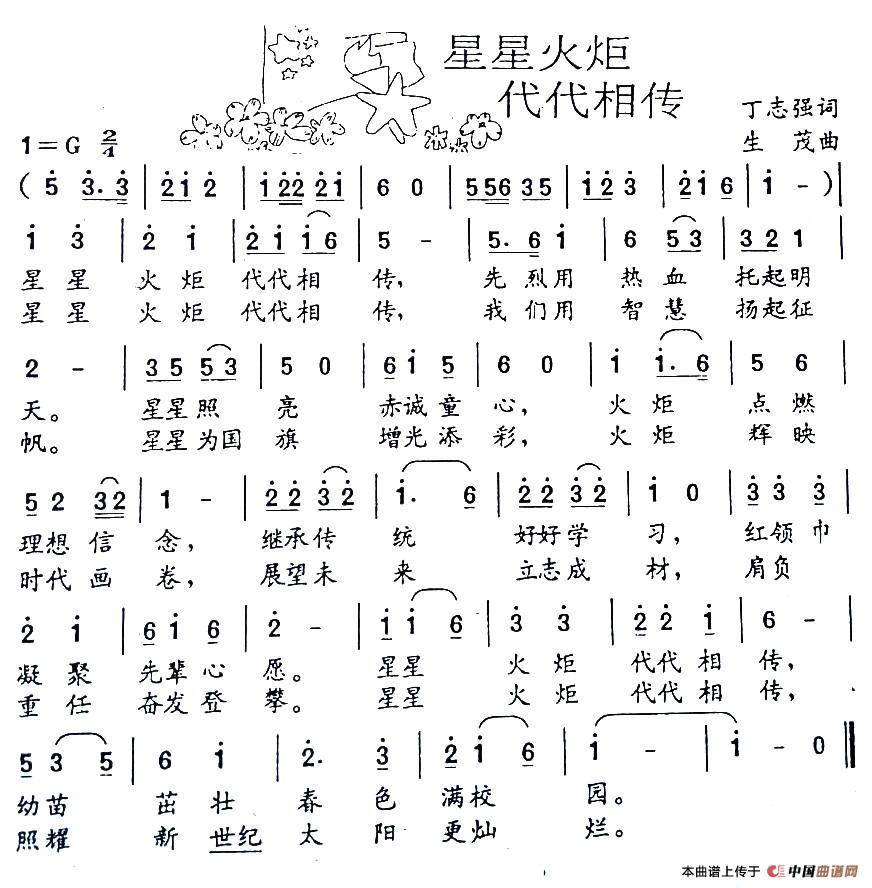 星星火炬
代代相传
丁志强词
1=G 2/4
生茂曲
( 5 3. 3 | 2 1 2 | 1 2 2 2 1 | 6 0 | 5 5 6 3 5 | 1 2 3 | 2 1 6 | 1 - ) |
1 3 | 2 1 | 2 1 1 6 | 5 - | 5. 6 1 | 6 5 3 | 3 2 1 |
星星 火炬 代代相 传, 先烈用 热血 托起明
星星 火炬 代代相 传, 我们用 智慧 扬起征
2 - | 3 5 5 3 | 5 0 | 6 1 5 | 6 0 | 1 1. 6 | 5 6 |
天。 星星照 亮 赤诚童 心, 火炬 点燃
帆。 星星为国 旗 增光添 彩, 火炬 辉映
5 2 3 2 | 1 - | 2 2 3 2 | 1. 6 | 2 2 3 2 | 1 0 | 3 3 3 |
理想信 念, 继承传 统 好好学 习, 红领巾
时代画 卷, 展望未 来 立志成 材, 肩负
2 1 | 6 1 6 | 2 - | 1 1 6 | 3 3 | 2 2 1 | 6 - |
凝聚 先辈心 愿。 星星 火炬 代代相 传,
重任 奋发登 攀。 星星 火炬 代代相 传,
5 3 5 | 6 1 | 2. 3 | 2 1 6 | 1 - | 1 - 0 ‖
幼苗 茁壮 春色 满校 园。
照耀 新世纪 太阳 更灿 烂。
本曲谱上传于 中国曲谱网